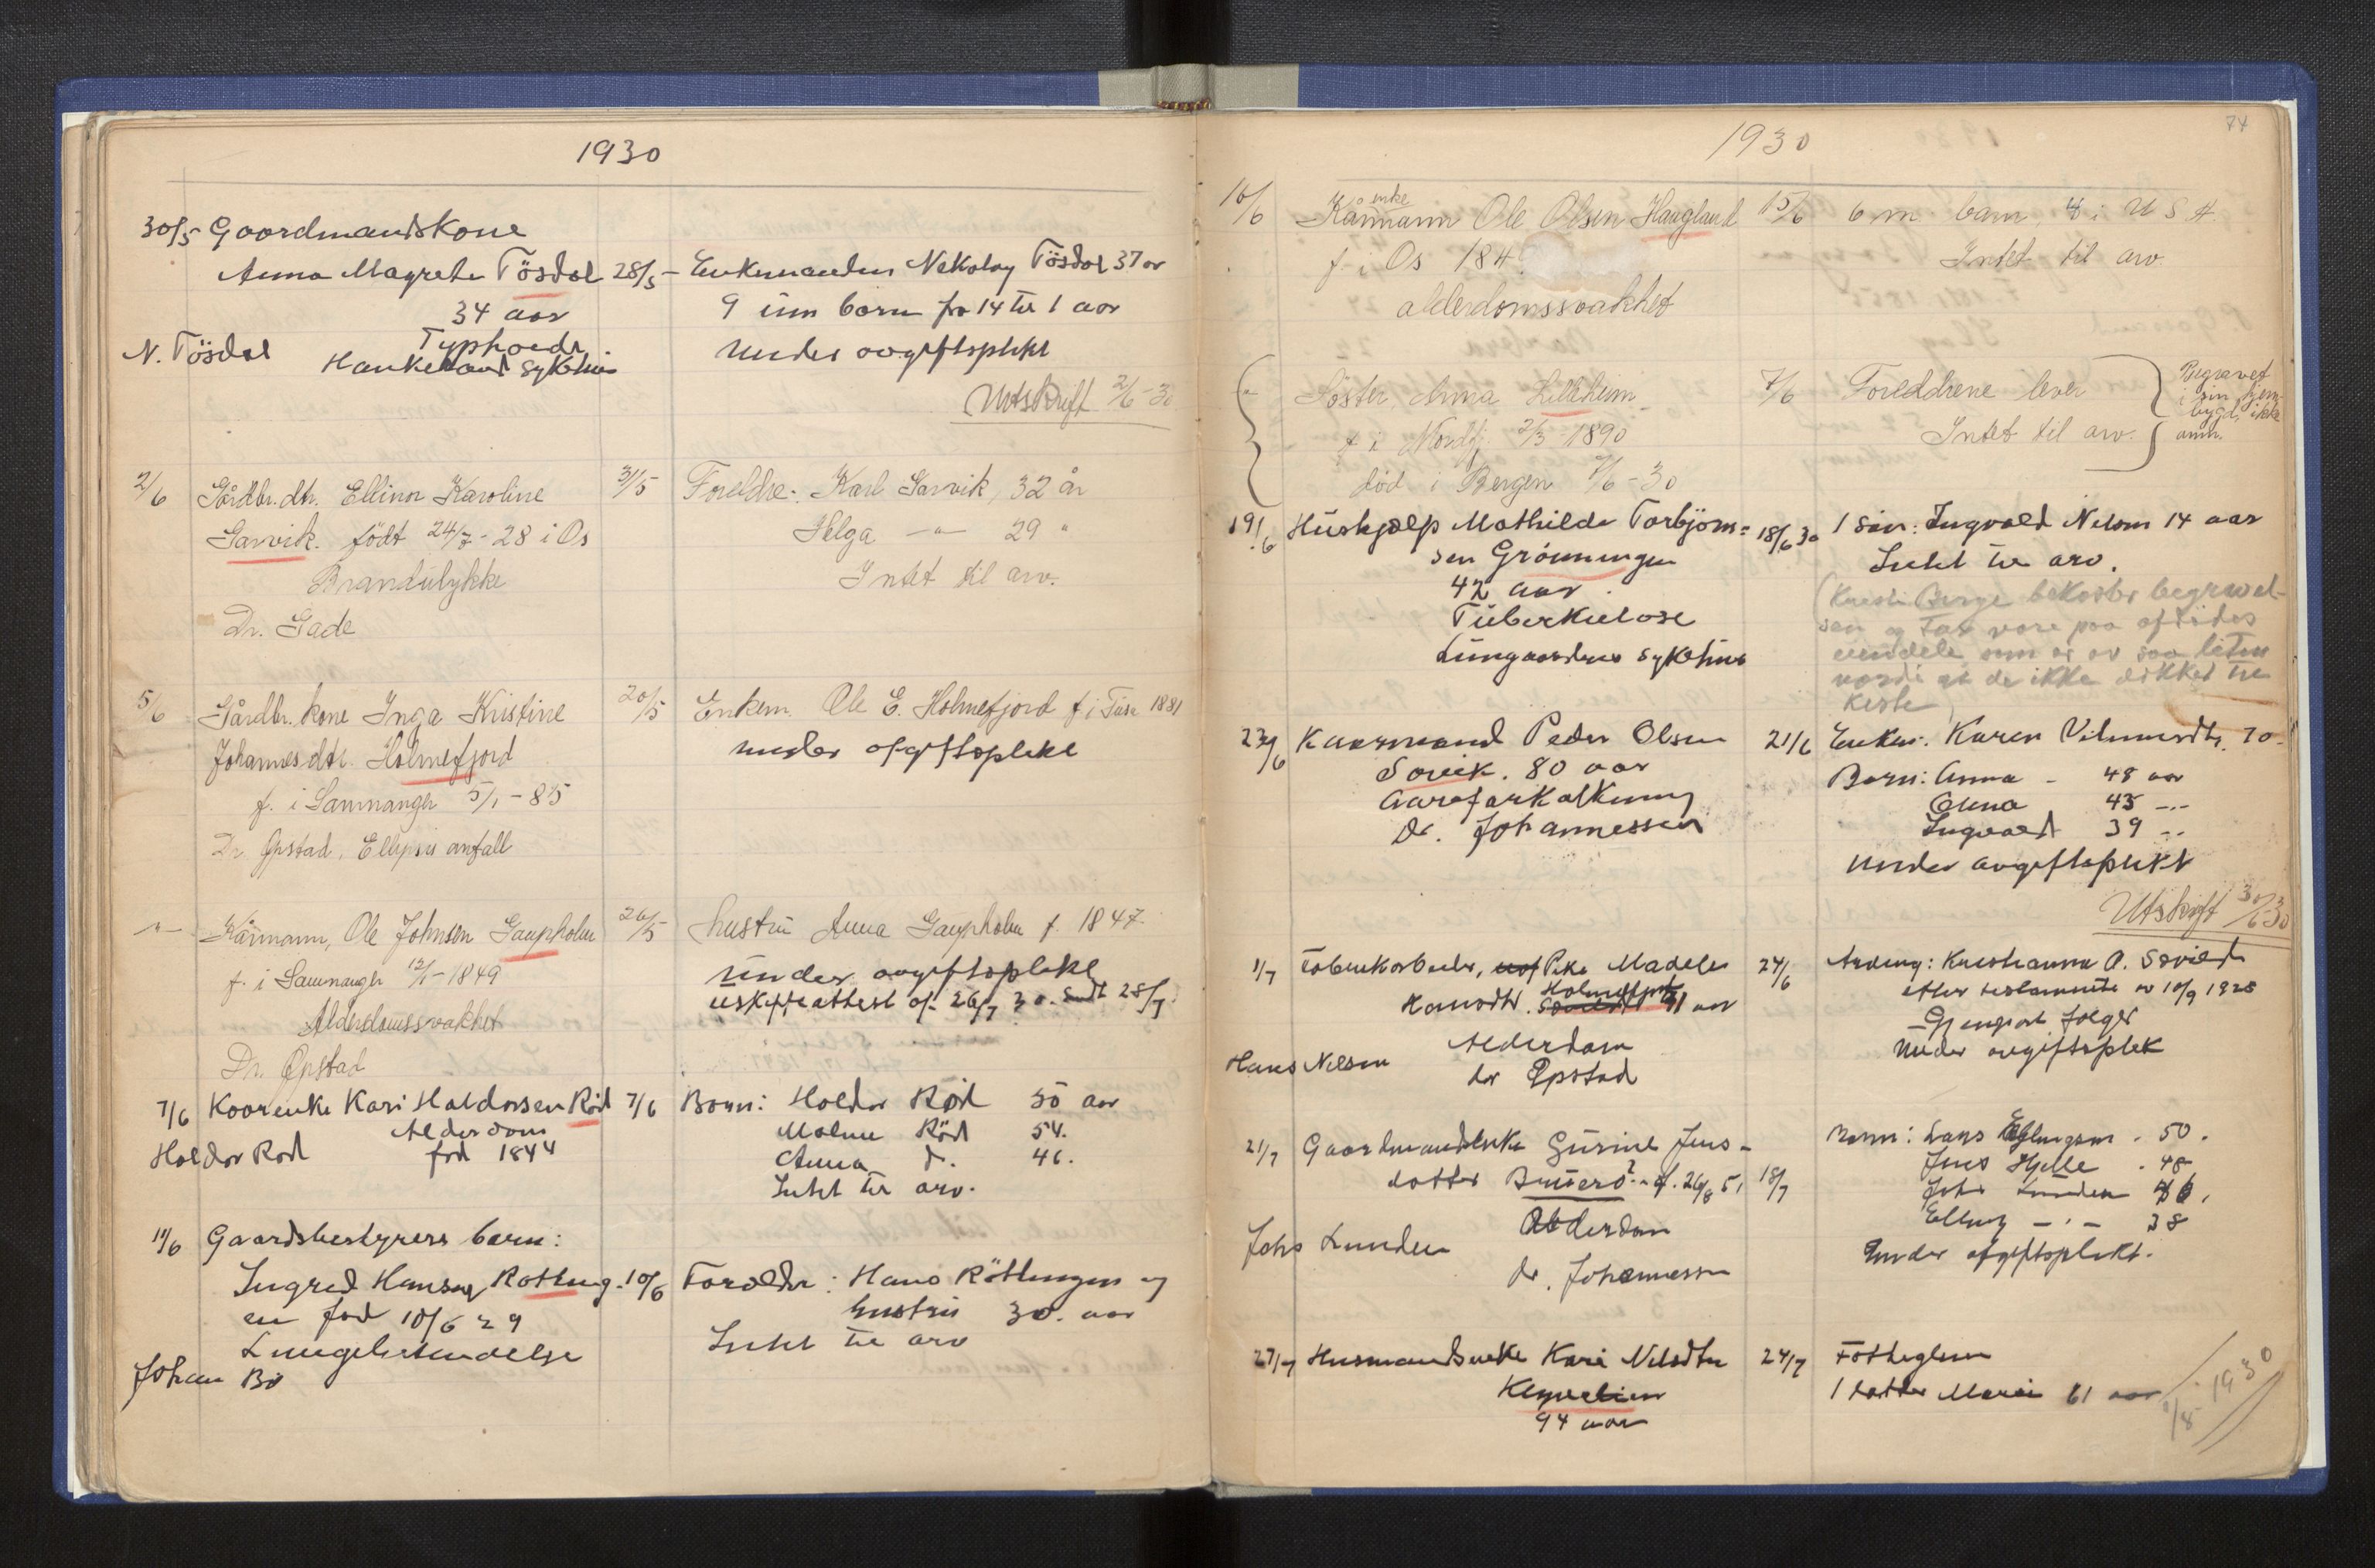 1930
30/5 Gaardmandskone
Anna Magrete Tösdal 28/5 - Enkemanden Nekolay Tösdal 37 aar
34 aar 9 um born fra 14 til 1 aar
N. Tösdal Typhoedr Under avgiftsplikt
Haukeland Sykehus
Utskrift 2/6-30
2/6 Gårdbr. dtr. Ellinor Karoline 31/5 Foreldre: Karl Garvik, 32 år
Garvik. født 24/7-28 i Os Helga -"- 29 "
Brandulykke Intet til arv.
Dr. Gade
5/6 Gårdbr. kone Inga Kristine 20/5 Enkem. Ole E. Holmefjord f. i Fuse 1881
Johannesdtr. Holmefjord under afgiftsplikt
f. i Samnanger 5/1-85
Dr. Opstad, anfall
-"- Kårmann, Ole Johnsen Gaupholm 26/5 hustru Anna Gaupholm f. 1847.
f. i Samnanger 12/1-1849 Under avgiftsplikt
Alderdomssvakhet uskifteattest af 26/7 30. Sendt 28/7
Dr. Opstad
7/6 Koorenke Kari Haldorsen Röd 7/6 Born: Holdor Röd 50 aar
Alderdom Malene Röd 54.
Holdor Röd fød 1844 Anna d. 46.
Intet til arv.
11/6 Gaardsbestyrers barn:
Ingrid Hansen Rötting- 10/6 Foreldre: Hans Röttingen og
en fød 10/6 29 hustru 30. aar
Lungebetendelse Intet til arv
Johan Bö
74
1930
16/6 Kårmann enke Ole Olsen Haugland 15/6 6 m. barn, 4 i U S A.
f. i Os 184 Intet til arv.
alderdomssvakhet
-"- Söster Anna Lilleheim 7/6 Foreldrene lever
Begravet
i sin hjem-
bygd, ikke
anm.
f. i Nordfj. 2/3-1890 Intet til arv.
död i Bergen 7/6-30
19/6 Hushjælp Mathilde Torbjörn= 18/6 30 1 sön: Ingvald Nelsen 14 aar
sen Grönningen Intet til arv.
42 aar
Tuberkulose
Lungaardens sykehus
(Kristi Berge bekoster begravel-
sen og tar vare paa afdødes
eiendele som er av saa liten
verdi at de ikke dækket til
kiste)
23/6 Kaarmand Peder Olsen 21/6 Enke: Karen Vilumsdtr. 70-
Sövik. 80 aar Barn: Anna - 48 aar
Aareforkalkning Olena 45 -"-
Dr. Johannessen Ingvald 39 -"-
Under avgiftsplikt
Utskrift 30/6-30
1/7 Pike Madele 24/6 Arving: Kristianna O. Sövik
Hansdtr. Holmefjord 71 aar efter testamente av 10/9 1928
Gjenpart følger
Alderdom Under avgiftsplikt
Hans Nelsen dr Opstad
21/7 Gaardmandsenke Gurine Jens- Barn: Lars Ellingsen . 50.
dotter f. 26/8 51 18/7 Jens Hjelle . 48
Johs Lunden 46.
Alderdom Elling -"- 38
Johs Lunden Under afgiftsplikt.
dr. Johannessen
27/7 Husmandsenke Kari Nilsdtr 24/7 Fattiglem
94 aar 1 datter Mari 61 aar
1/8 1930